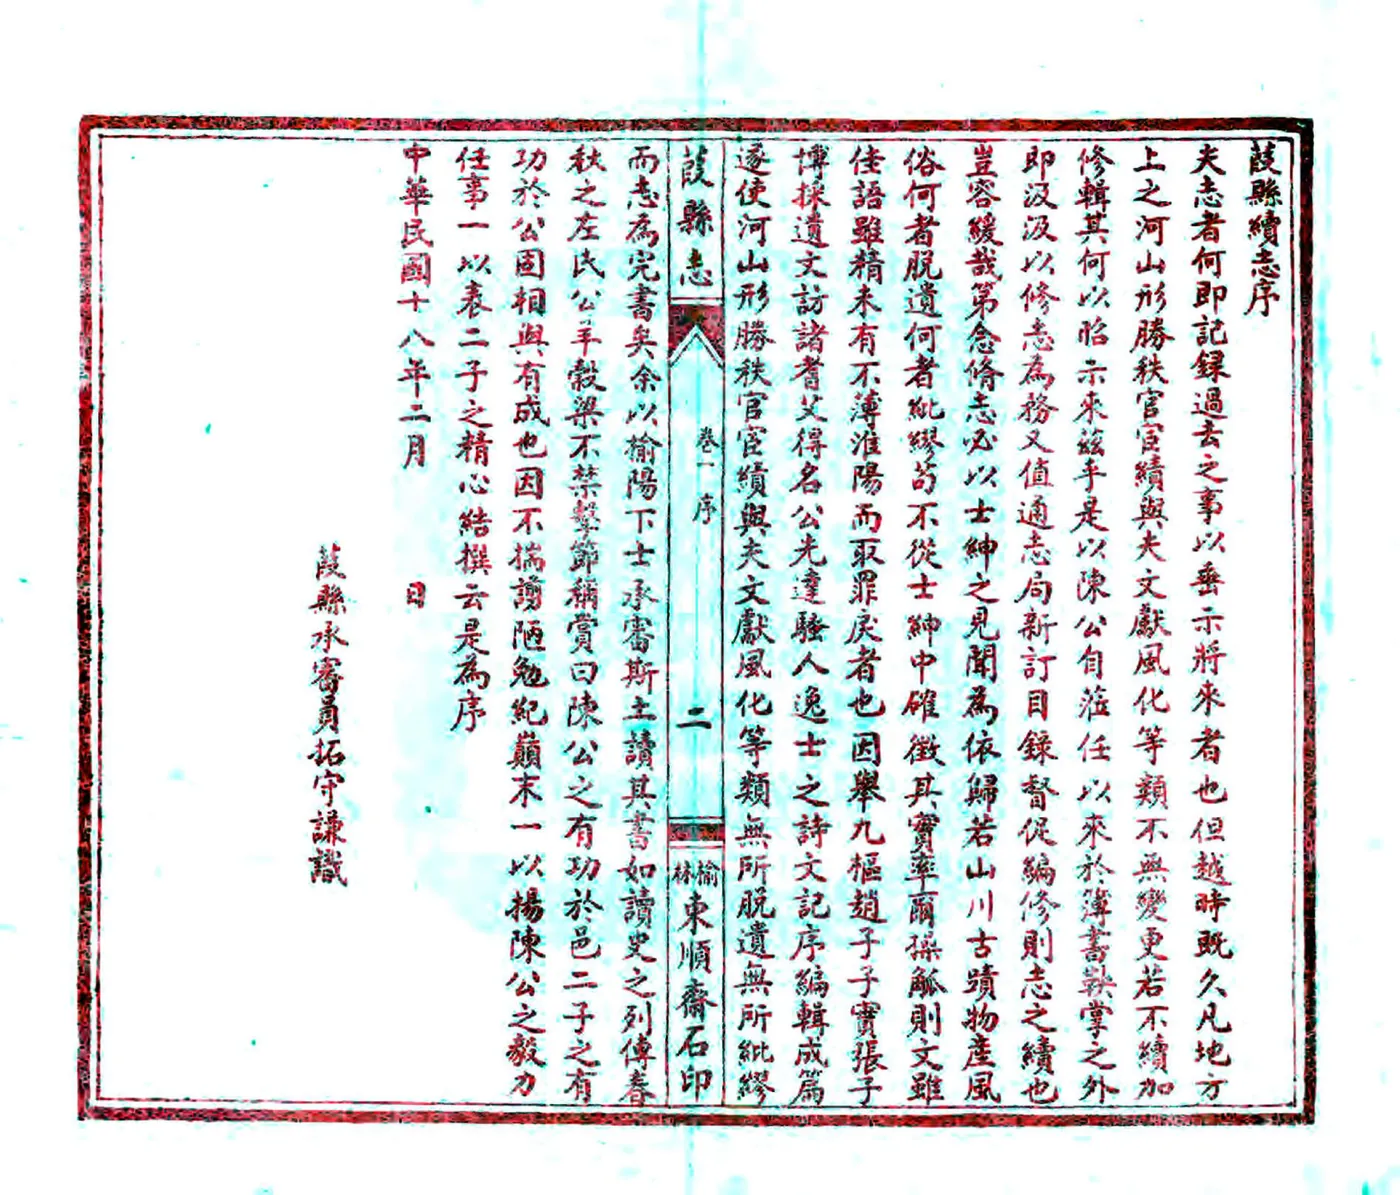 葭縣續志序
夫志者何即記録過去之事以垂示將來者也但越時既久凡地方
上之河山形勝秩官宦績與夫文獻風化等類不無變更若不續加
修輯其何以昭示來兹乎是以陳公自蒞任以來於簿書鞅掌之外
即汲汲以修志為務又值通志局新訂目録督促編修則志之續也
豈容緩哉第念脩志必以士紳之見聞為依歸若山川古蹟物產風
俗何者脱遺何者紕繆茍不從士紳中確徵其實率爾操觚則文雖
佳語雖精未有不薄淮陽而取罪戾者也因舉九樞趙子子實張子
博採遺文訪諸耆父得名公先達騷人逸士之詩文記序編輯成篇
遂使河山形勝秩官宦績與夫文獻風化等類無所脱遺無所紕繆
葭縣志
卷一 序
二
榆林東順齋石印
而志為完書矣余以榆陽下士承審斯土讀其書如讀史之列傳春
秋之左氏公羊穀梁不禁擊節稱賞曰陳公之有功於邑二子之有
功於公固相與有成也因不揣謭陋勉紀巔末一以揚陳公之毅力
任事一以表二子之精心結撰云是為序
中華民國十八年二月 日
葭縣承審員拓守謙識